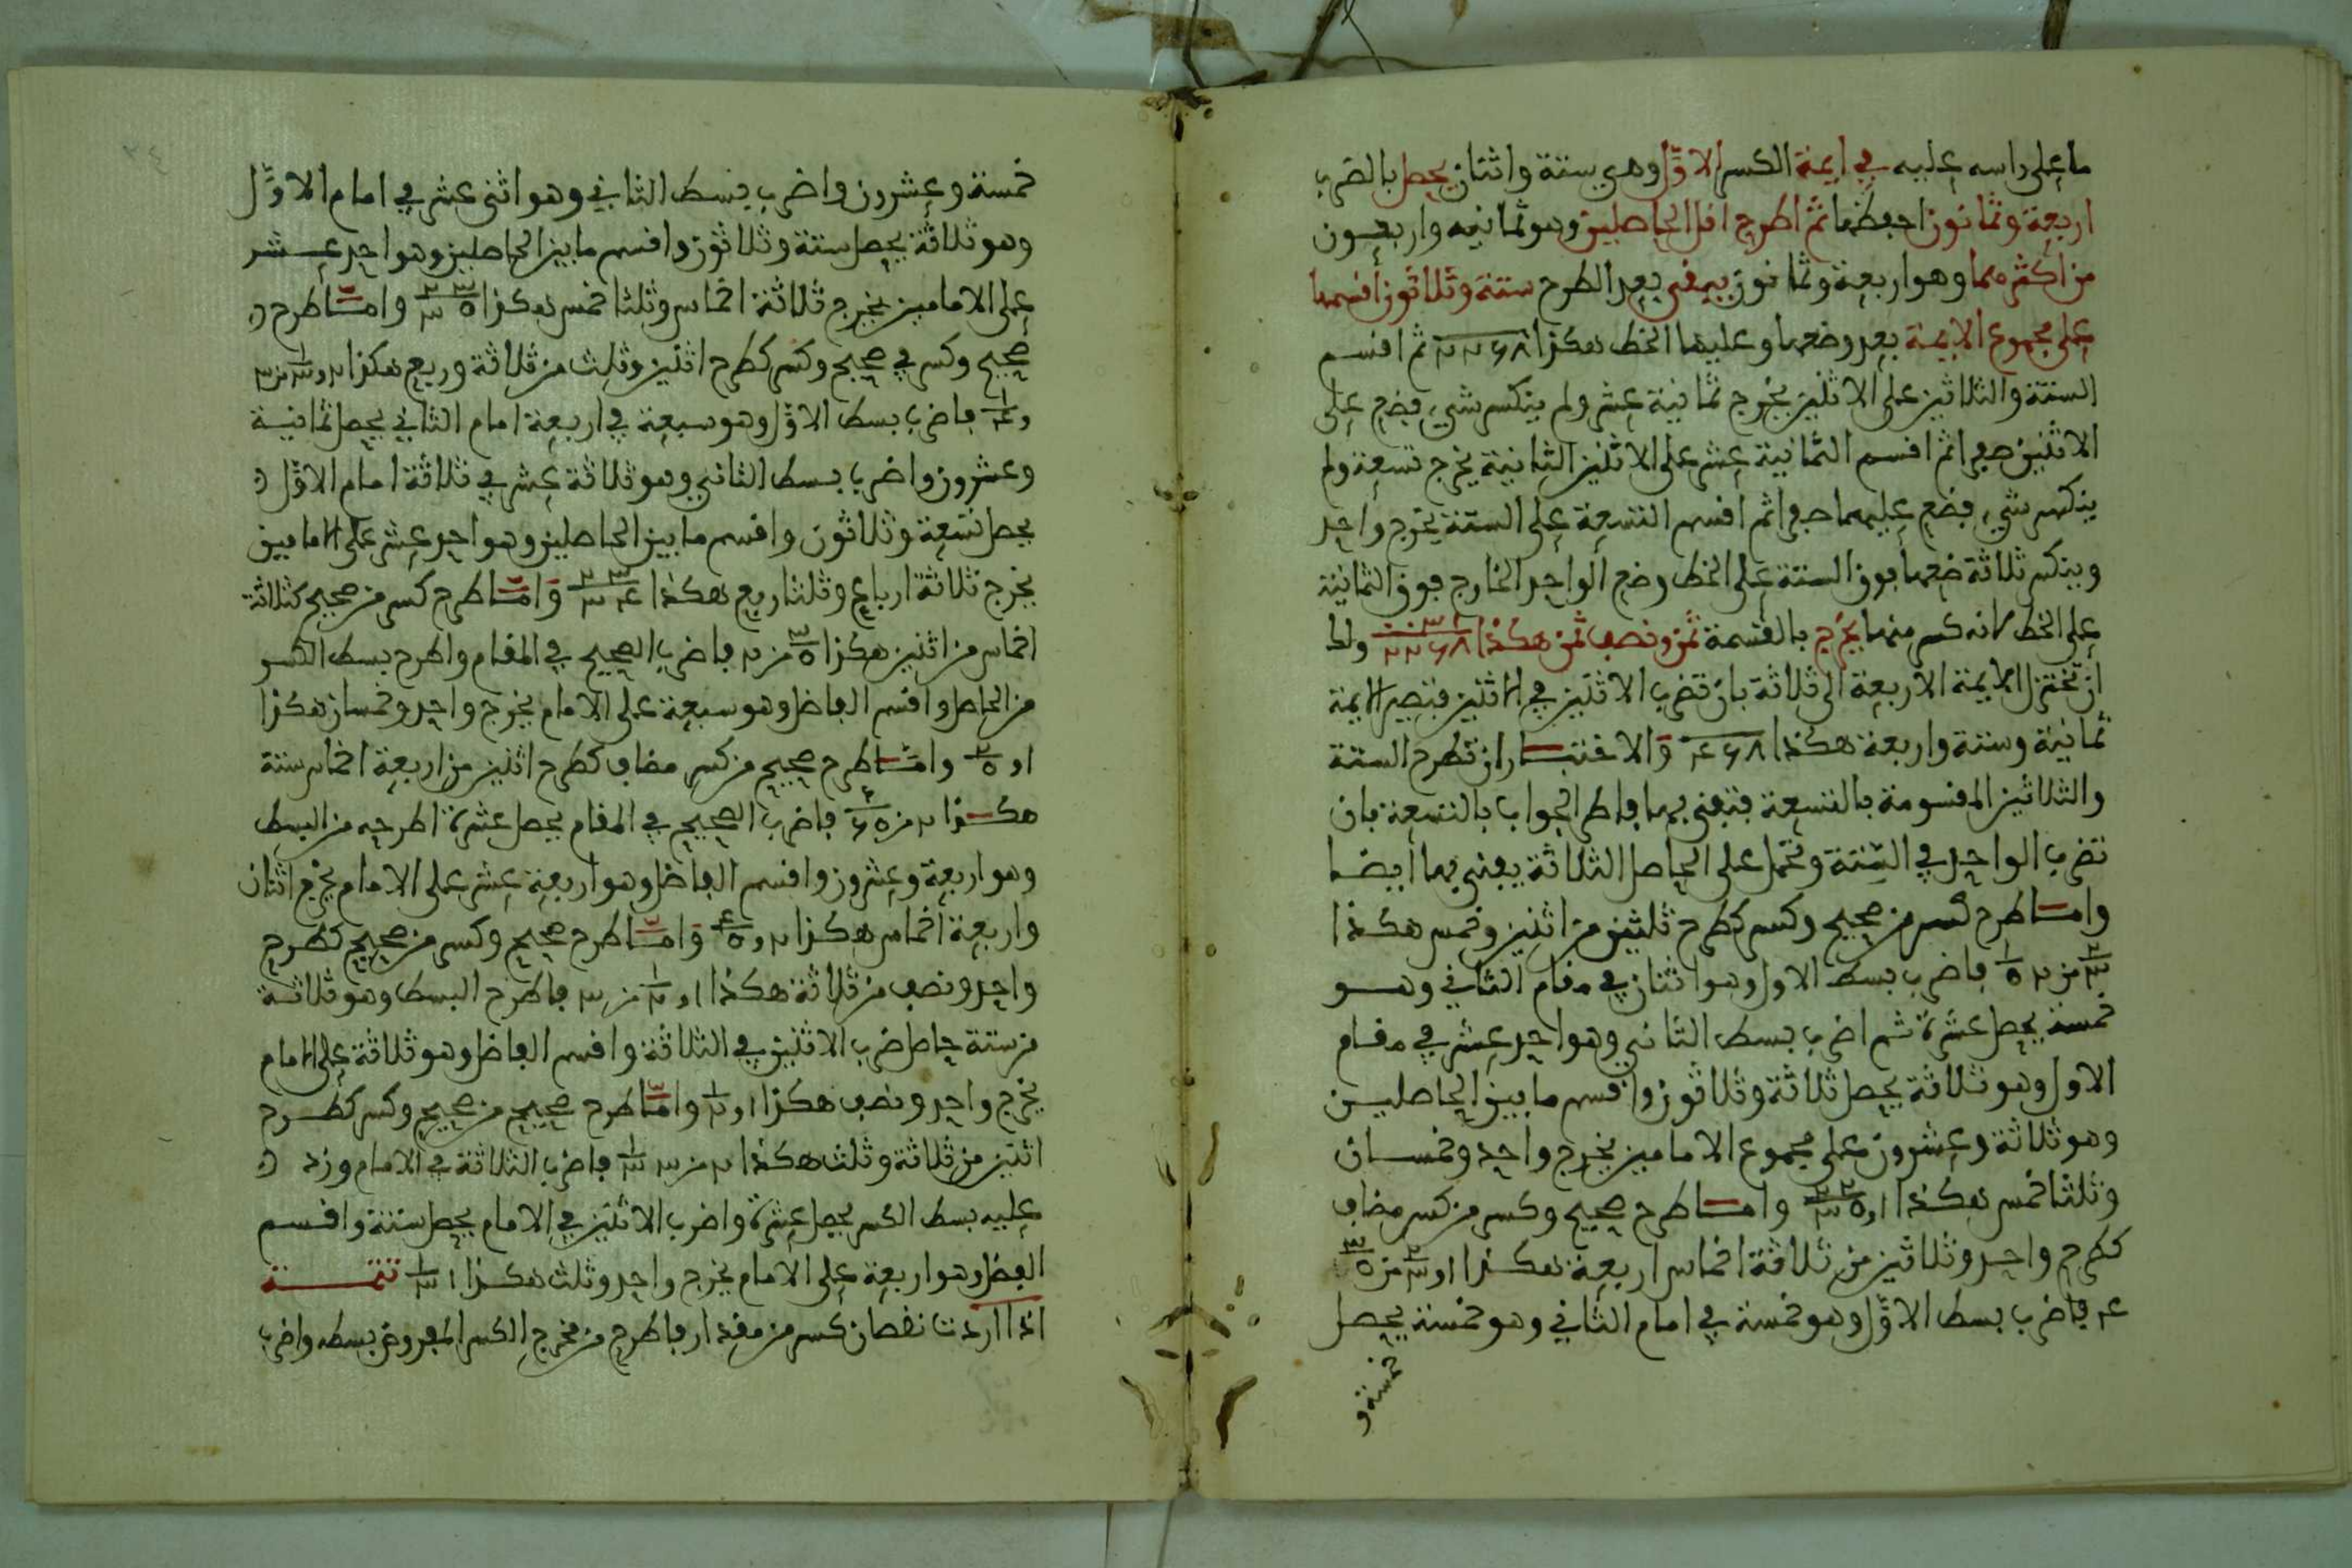 ما على راسه عليه في ايمة الكسر الاوّل وهي ستة واثنان يحصل بالضرب
اربعة وثمانون احفظها ثم اطرح اقل الحاصلين وهو ثمانيه واربعون
من اكثرهما وهو اربعة وثمانون يبقى بعد الطرح ستة وثلاثون اقسمها
على مجموع الايمة بعد وضعها وعليها الخط هكذا ٢٢٦٨ ثم اقسم
الستة والثلاثين على الاثنين يخرج ثمانية عشر ولم ينكسر شيء فضع على
الاثنين صفرا ثم اقسم الثمانية عشر على الاثنين الثانية يخرج تسعة ولم
ينكسر شيء فضع عليهما صفرا ثم اقسم التسعة على الستة يخرج واحد
وينكسر ثلاثة ضعها فوق الستة على الخط وضع الواحد الخارج فوق الثمانية
على الخط لانه كسر منها يخرج بالقسمة ثمن ونصف ثمن هكذا ٠٠٣١ ٢٢٦٨ ولك
ان تختزل الايمة الاربعة الى ثلاثة بان تضرب الاثنين في الاثنين فتصير الايمة
ثمانية وستة واربعة هكذا ٤٦٨ والاختبار ان تطرح الستة
والثلاثين المقسومة بالتسعة فتفنى بها فاطرح الجواب بالتسعة بان
تضرب الواحد في الستة وتحمل على الحاصل الثلاثة يفنى بها ايضا
واما طرح كسر من صحيح وكسر كطرح ثلثين من اثنين وخمس هكذا
٢/٣ من ٢ ١/٥ فاضرب بسط الاول وهو اثنان في مقام الثاني وهو
خمسة يحصل عشرة ثم اضرب بسط الثاني وهو احد عشر في مقام
الاول وهو ثلاثة يحصل ثلاثة وثلاثون واقسم ما بين الحاصلين
وهو ثلاثة وعشرون على مجموع الامامين يخرج واحد وخمسان
وثلثا خمس هكذا ١ و ٢٢/٣٥ واما طرح صحيح وكسر من كسر مضاف
كطرح واحد وثلاثين من ثلاثة اخماس اربعة هكذا ١ و ٢/٣ من ٣/٥
٤ فاضرب بسط الاوّل وهو خمسة في امام الثاني وهو خمسة يحصل
خمسة و
خمسة وعشرون واضرب بسط الثاني وهو اثنى عشر في امام الاوّل
وهو ثلاثة يحصل ستة وثلاثون واقسم ما بين الحاصلين وهو احد عشر
على الامامين يخرج ثلاثة اخماس وثلثا خمس هكذا ٢٣/٣٥ واما طرح
صحيح وكسر في صحيح وكسر كطرح اثنين وثلث من ثلاثة وربع هكذا ٢ و ١/٣ من ٣
و ١/٤ فاضرب بسط الاوّل وهو سبعة في اربعة امام الثاني يحصل ثمانية
وعشرون واضرب بسط الثاني وهو ثلاثة عشر في ثلاثة امام الاوّل
يحصل تسعة وثلاثون واقسم ما بين الحاصلين وهو احد عشر على الامامين
يخرج ثلاثة ارباع وثلثا ربع هكذا ٢٣/٣٤ واما طرح كسر من صحيح كثلاثة
اخماس من اثنين هكذا ٣/٥ من ٢ فاضرب الصحيح في المقام واطرح بسط الكسر
من الحاصل واقسم الفاضل وهو سبعة على الامام يخرج واحد وخمسان هكذا
١ و ٢/٥ واما طرح صحيح من كسر مضاف كطرح اثنين من اربعة اخماس ستة
هكذا ٢ من ٤/٥ ٦ فاضرب الصحيح في المقام يحصل عشرة اطرحه من البسط
وهو اربعة وعشرون واقسم الفاضل وهو اربعة عشر على الامام يخرج اثنان
واربعة اخماس هكذا ٢ و ٤/٥ واما طرح صحيح وكسر من صحيح كطرح
واحد ونصف من ثلاثة هكذا ١ و ١/٢ من ٣ فاطرح البسط وهو ثلاثة
من ستة حاصل ضرب الاثنين في الثلاثة واقسم الفاضل وهو ثلاثة على الامام
يخرج واحد ونصف هكذا ١ و ١/٢ واما طرح صحيح من صحيح وكسر كطرح
اثنين من ثلاثة وثلث هكذا ٢ من ٣ ١/٣ فاضرب الثلاثة في الامام وزد
عليه بسط الكسر يحصل عشرة واضرب الاثنين في الامام يحصل ستة واقسم
الفضل وهو اربعة على الامام يخرج واحد وثلث هكذا ١ ١/٣ تتمة
اذا اردت نقصان كسر من مقدار فاطرح من مخرج الكسر المفروض بسطه واضرب